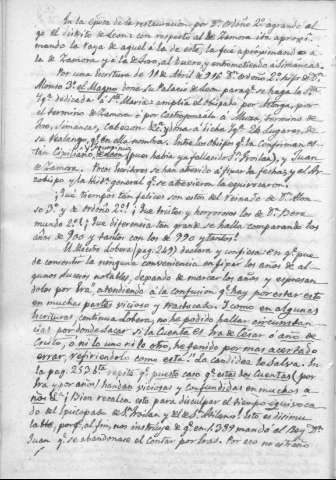 En la época de la restauracion por Dn. Ordoño 2º agrandó al
go el distrito de Leon: con respecto al de Zamora iba aproxi-
mando la raya de aquel à la de este, la fué aproximando a
la de Zamora y à la de Toro, al Duero, y entrometiendo à Simancas.
Por una Escritura de 11 de Abril de 916 Dn. Ordoño 2º hijo de Dn.
Alonso 3º el Magno dona su Palacio de Leon para qe. se haga la Sta.
Iga. dedicada à Sta. Maria: amplia el Obispado por Astorga, por
el termino de Zamora ó por Castrogonzalo à Muza, termino de
Toro, Simancas, Cabezon &c. y dona à dicha Iga. lugares, de
su Realengo qe. en ella nombra. Entre los Obispos qe. la Confirman es-
tan Cixilano, de Leon (pues habia ya fallecido Sn. Froilan), y Juan
de Zamora. Otros Escritores se han atrevido à fijar las fechas, y el Ar-
zobispo y la Historia general qe. se atrevieron la equivocaron.
¡Qué tiempos tan felices son estos del Reinado de Dn. Alon-
so 3º y de Ordoño 2º! ¡Qué tristes y horrorosos los de Dn. Bere
mundo 2º! ¡Qué diferencia tan grande se halla comparando los
años de 900 y tantos con los de 990 y tantos!
El Maestro Lobera (pag. 249) declara y confiesa en qe. pue
de consentir la ninguna conveniencia en fijar los años de al-
gunos sucesos notables, dejando de marcar los años y expresan
dolos por Era: atendiendo à la confusion qe. hay por estar esto
en muchas partes vicioso y trastocado. I como en algunas
Escrituras, continua Lobera, no he podido hallar circunstan-
cias por donde sacar si la Cuenta es Era de César ó año de
Cristo, ó ni lo uno ni lo otro, he tenido por mas acertado
errar, refiriendolo como está. ¡La candidez le salva. En
la pag. 252 bta. repite qe. puesto caso qe. estas dos Cuentas (por
Era y por años) handen viciosas y confundidas en muchos a
ños &c. ¡Bien recalca esto para disculpar el tiempo equivoca
do del Epicopado de Sn. Froilan y del de Sn. Atilano! Esto es disimu
lable, porqe. al fin, nos instruye de qe. en 1.383 mandó el Rey Dn.
Juan qe. se abandonase el contar por Eras. Por eso no estraño